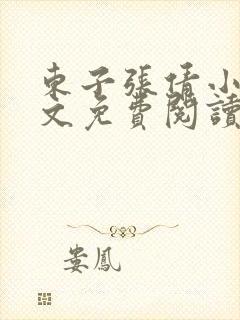 東子張倩小
文免費閱讀
婁鳳